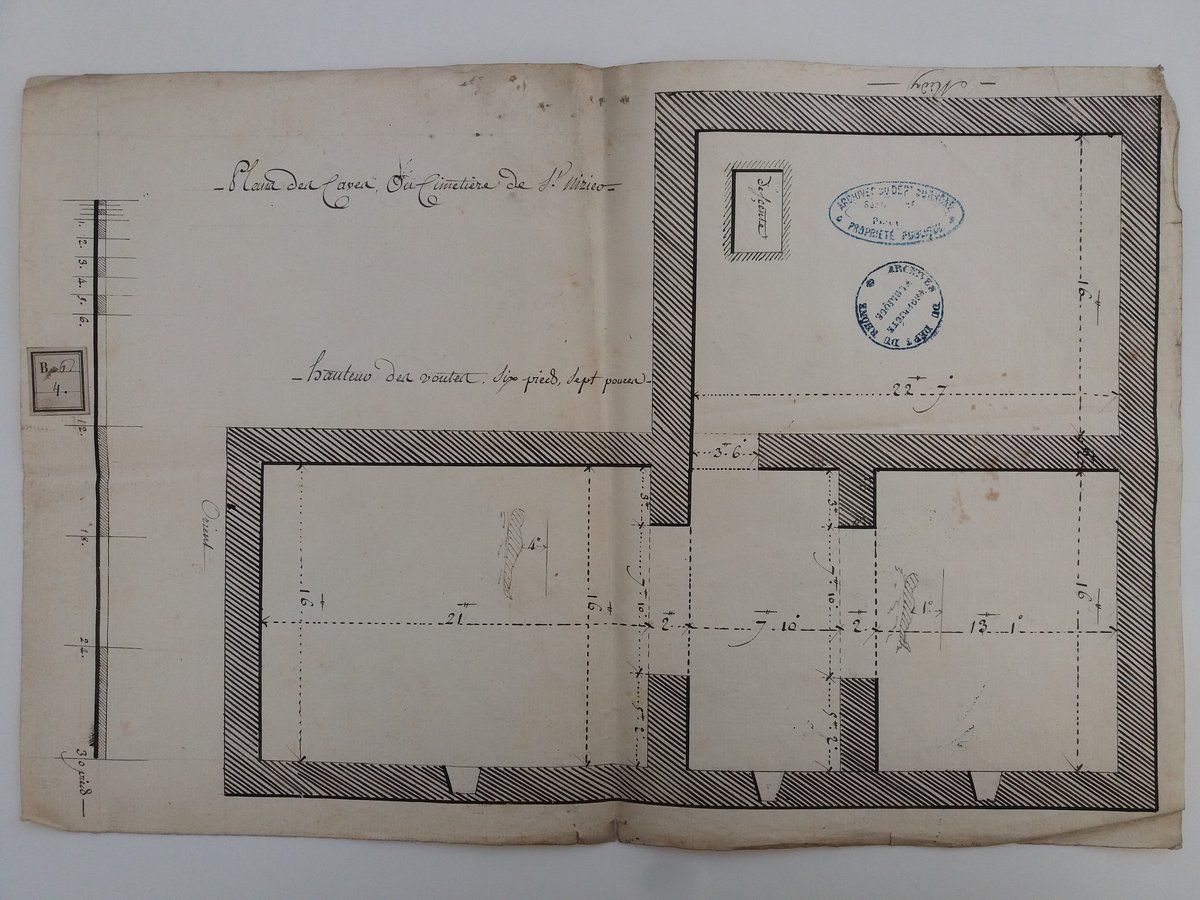 - Midy -
- Plan des Caves, Ou Cimetière de St. nizier -
descente
ARCHIVES DU DÉPT DU RHÔNE
PROPRIÉTÉ PUBLIQUE
ARCHIVES DU DÉPT DU RHÔNE
PROPRIÉTÉ PUBLIQUE
1.
2.
3.
4.
5.
6.
12.
18.
24.
30 pieds
B
4.
16
- hauteur des voutes, six pieds, sept pouces -
22 7
3 6
Orient
3
3
4
16
16
7 10
7 10
16
21
2
7 10
2
1
13 1
5 2
5 2